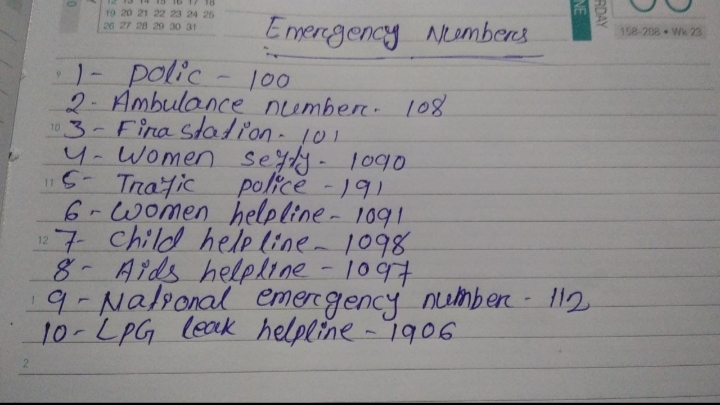 12 13 14 15 16 17 18
19 20 21 22 23 24 25
26 27 28 29 30 31
NE
RDAY
158-208 • Wk 23
Emergency Numbers
9 1- Polic - 100
2- Ambulance number- 108
10 3- Fira station- 101
4- Women sefty- 1090
11 5- Trafic police -191
6- Women helpline- 1091
12 7- Child helpline- 1098
8- Aids helpline - 1097
1 9- National emergency number- 112
10- LPG leak helpline - 1906
2